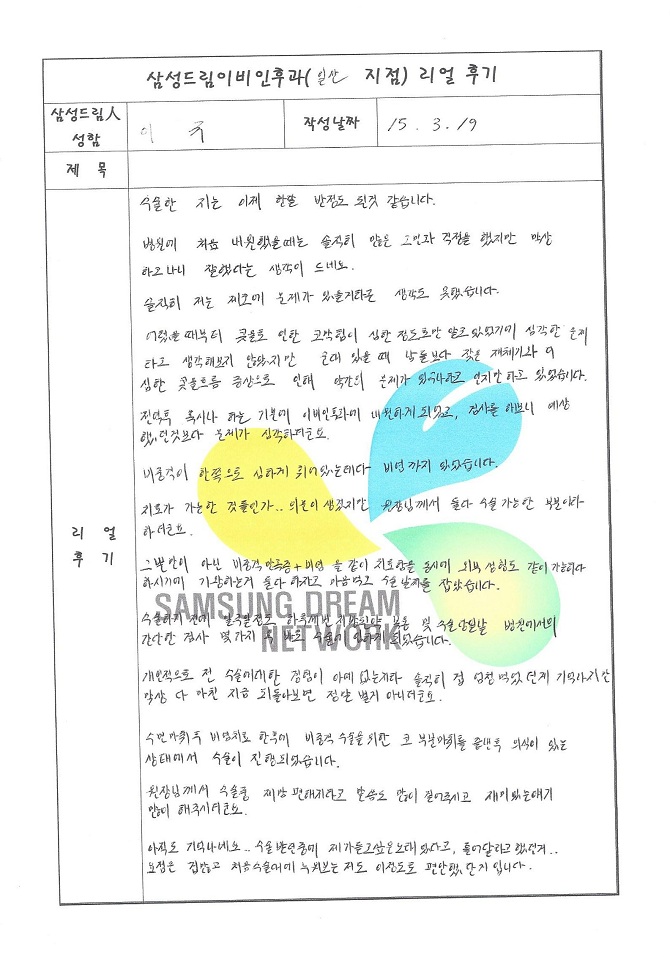 삼성드림이비인후과(일산 지점) 리얼 후기
삼성드림人
성함
이 국
작성날짜
15. 3. 19
제 목
리 얼
후 기
수술한 지는 이제 한달 반정도 된것 같습니다.
병원에 처음 내원했을때는 솔직히 많은 고민과 걱정을 했지만 막상
하고나니 잘했다는 생각이 드네요.
솔직히 저는 제코에 문제가 있을거라곤 생각도 못했습니다.
어렸을때부터 콧물로 인한 코막힘이 심한 정도로만 알고있었기에 심각한 문제
라고 생각해보지 않았지만 군대 있을 때 남들보다 잦은 재채기와
심한 콧물흐름 증상으로 인해 약간의 문제가 있구나하고 인지만 하고 있었습니다.
전역후 혹시나 하는 기분에 이비인후과에 내원하게 되었고, 검사를 해보니 예상
했던것보다 문제가 심각하더군요.
비중격이 한쪽으로 심하게 휘어있는데다가 비염까지 있었습니다.
치료가 가능한 것들인가.. 의문이 생겼지만 원장님께서 둘다 수술 가능한 부분이라
하더군요.
그뿐만이 아닌 비중격만곡증+비염 을 같이 치료함을 동시에 외부 성형도 같이 가능하다
하시기에 기왕하는거 둘다 하자고 마음먹고 수술 날짜를 잡았습니다.
수술하기 전에 하루 복용 및 수술당일날 병원에서의
간단한 검사 몇가지 후 바로 수술에 임하게 되었습니다.
개인적으로 전 수술에대한 경험이 아예 없는지라 솔직히 겁 엄청먹었던게 기억나지만
막상 다 마친 지금 되돌아보면 정말 별거 아니더군요.
수면마취후 비염치료 한후에 비중격 수술을위한 코 부분마취를 끝낸후 의식이 있는
상태에서 수술이 진행되었습니다.
원장님께서 수술중 제맘 편해지라고 말씀도 많이 걸어주시고 재미있는얘기
많이 해주시더군요.
아직도 기억나네요.. 수술받던중에 제가듣고싶은노래 있다고, 틀어달라고 했던게..
요점은 겁많고 처음수술이라 저도 이정도로 편안했단거 입니다.
SAMSUNG DREAM
NETWORK